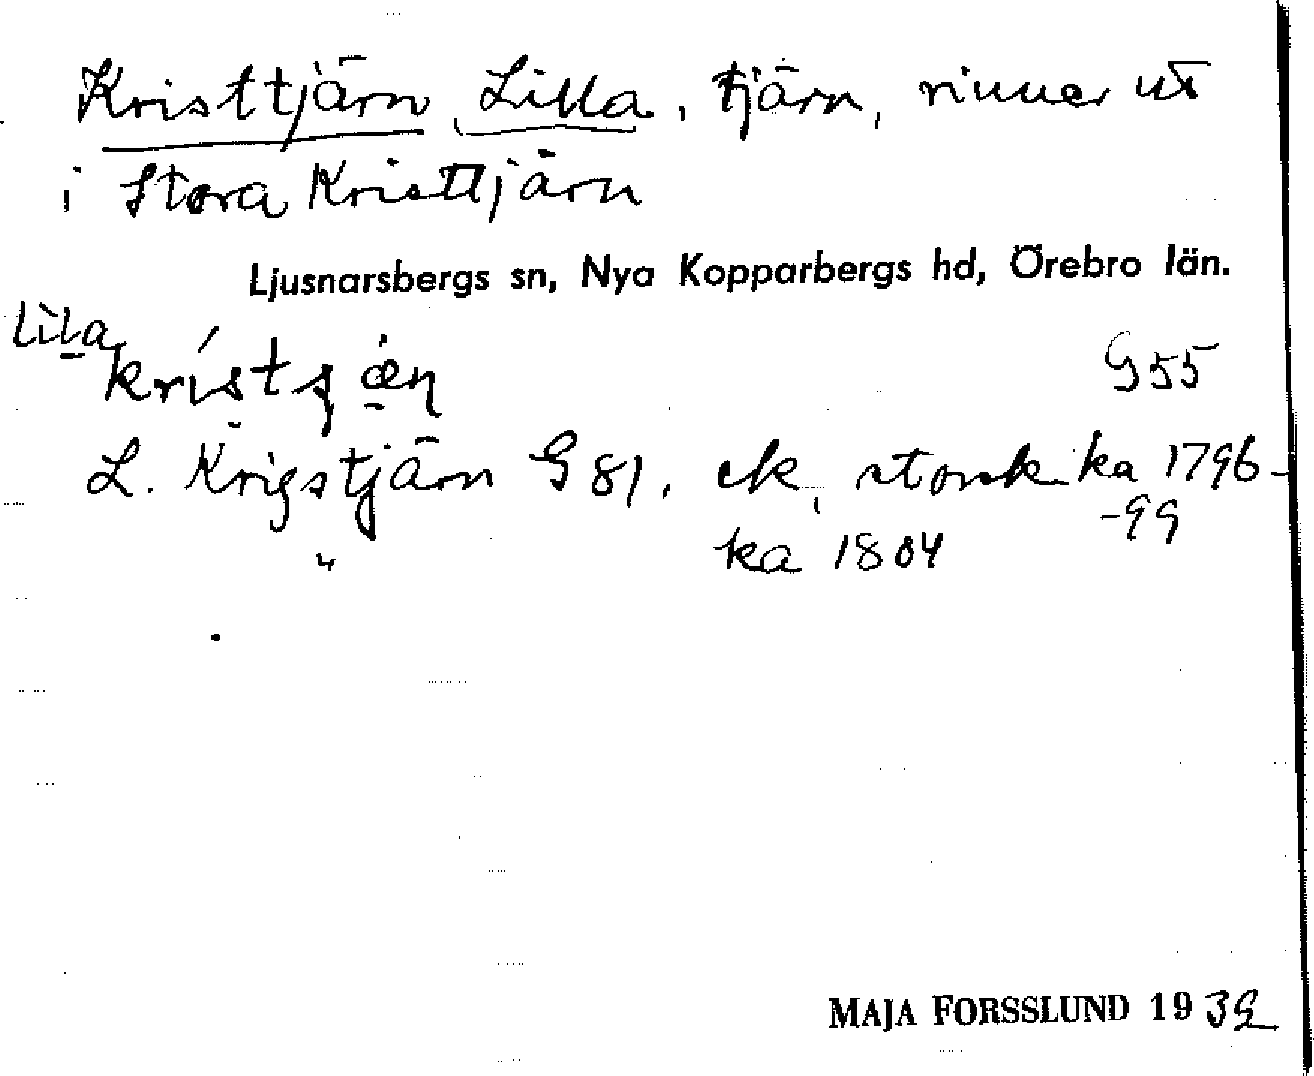 Kristtjärn, Lilla, tjärn, rinner ut
i Stora Kristtjärn
Ljusnarsbergs sn, Nya Kopparbergs hd, Örebro län.
Lila
kristjæn G55
L. Krigstjärn G 81, ek, storsk. ka 1796-
-99
" ka 1804
MAJA FORSSLUND 1939